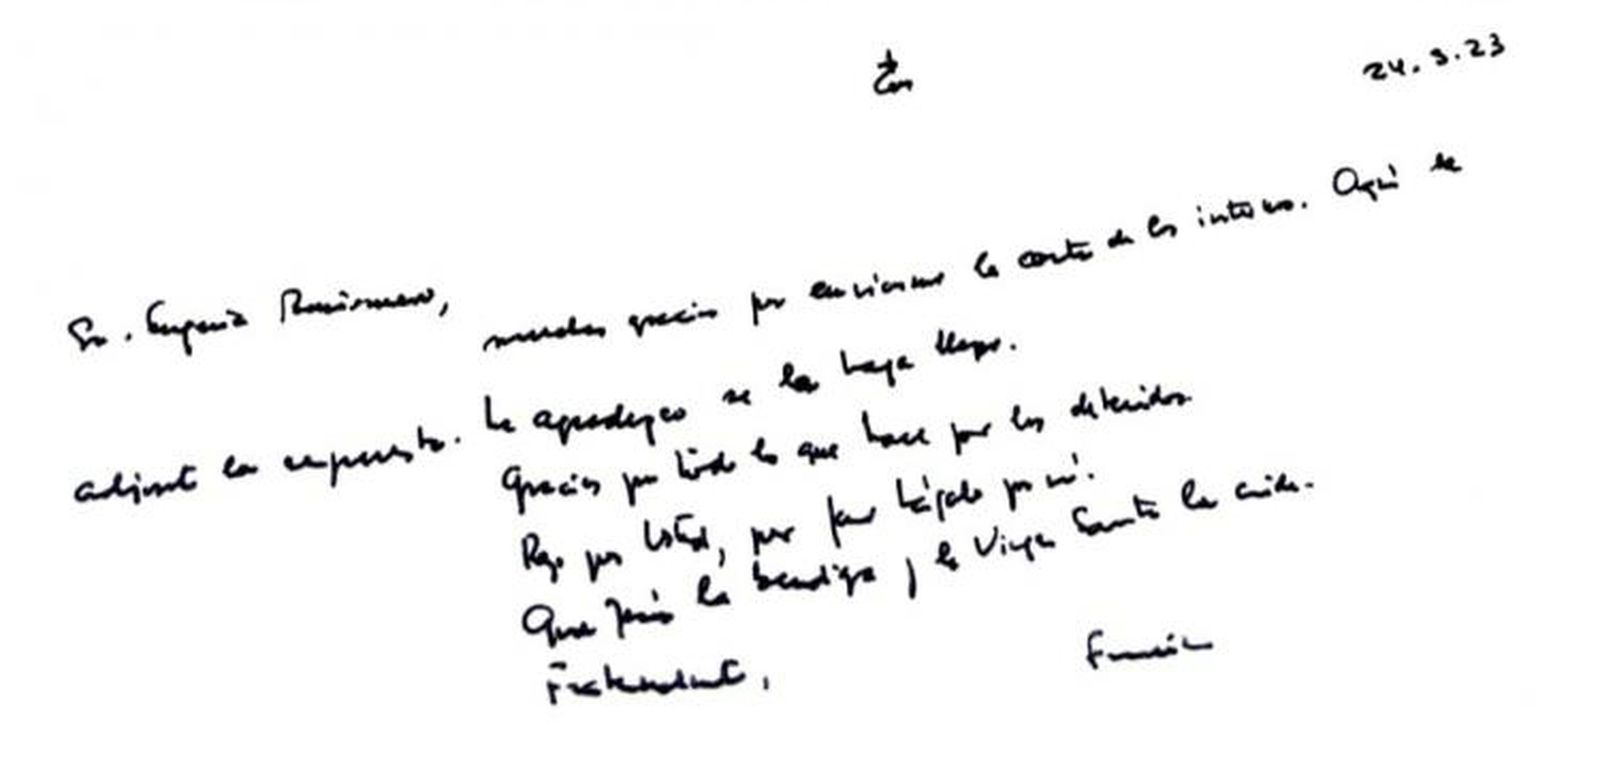 24.9.23
Sra. Eugenia
muchas gracias por enviarme la carta de los internos. Aquí le
adjunto la respuesta. Le agradezco se la haga llegar.
Gracias por todo lo que hace por los detenidos.
Rezo por Usted, por favor hágalo por mí.
Que Jesús la bendiga y la Virgen Santa la cuide.
Fraternalmente,
Francisco